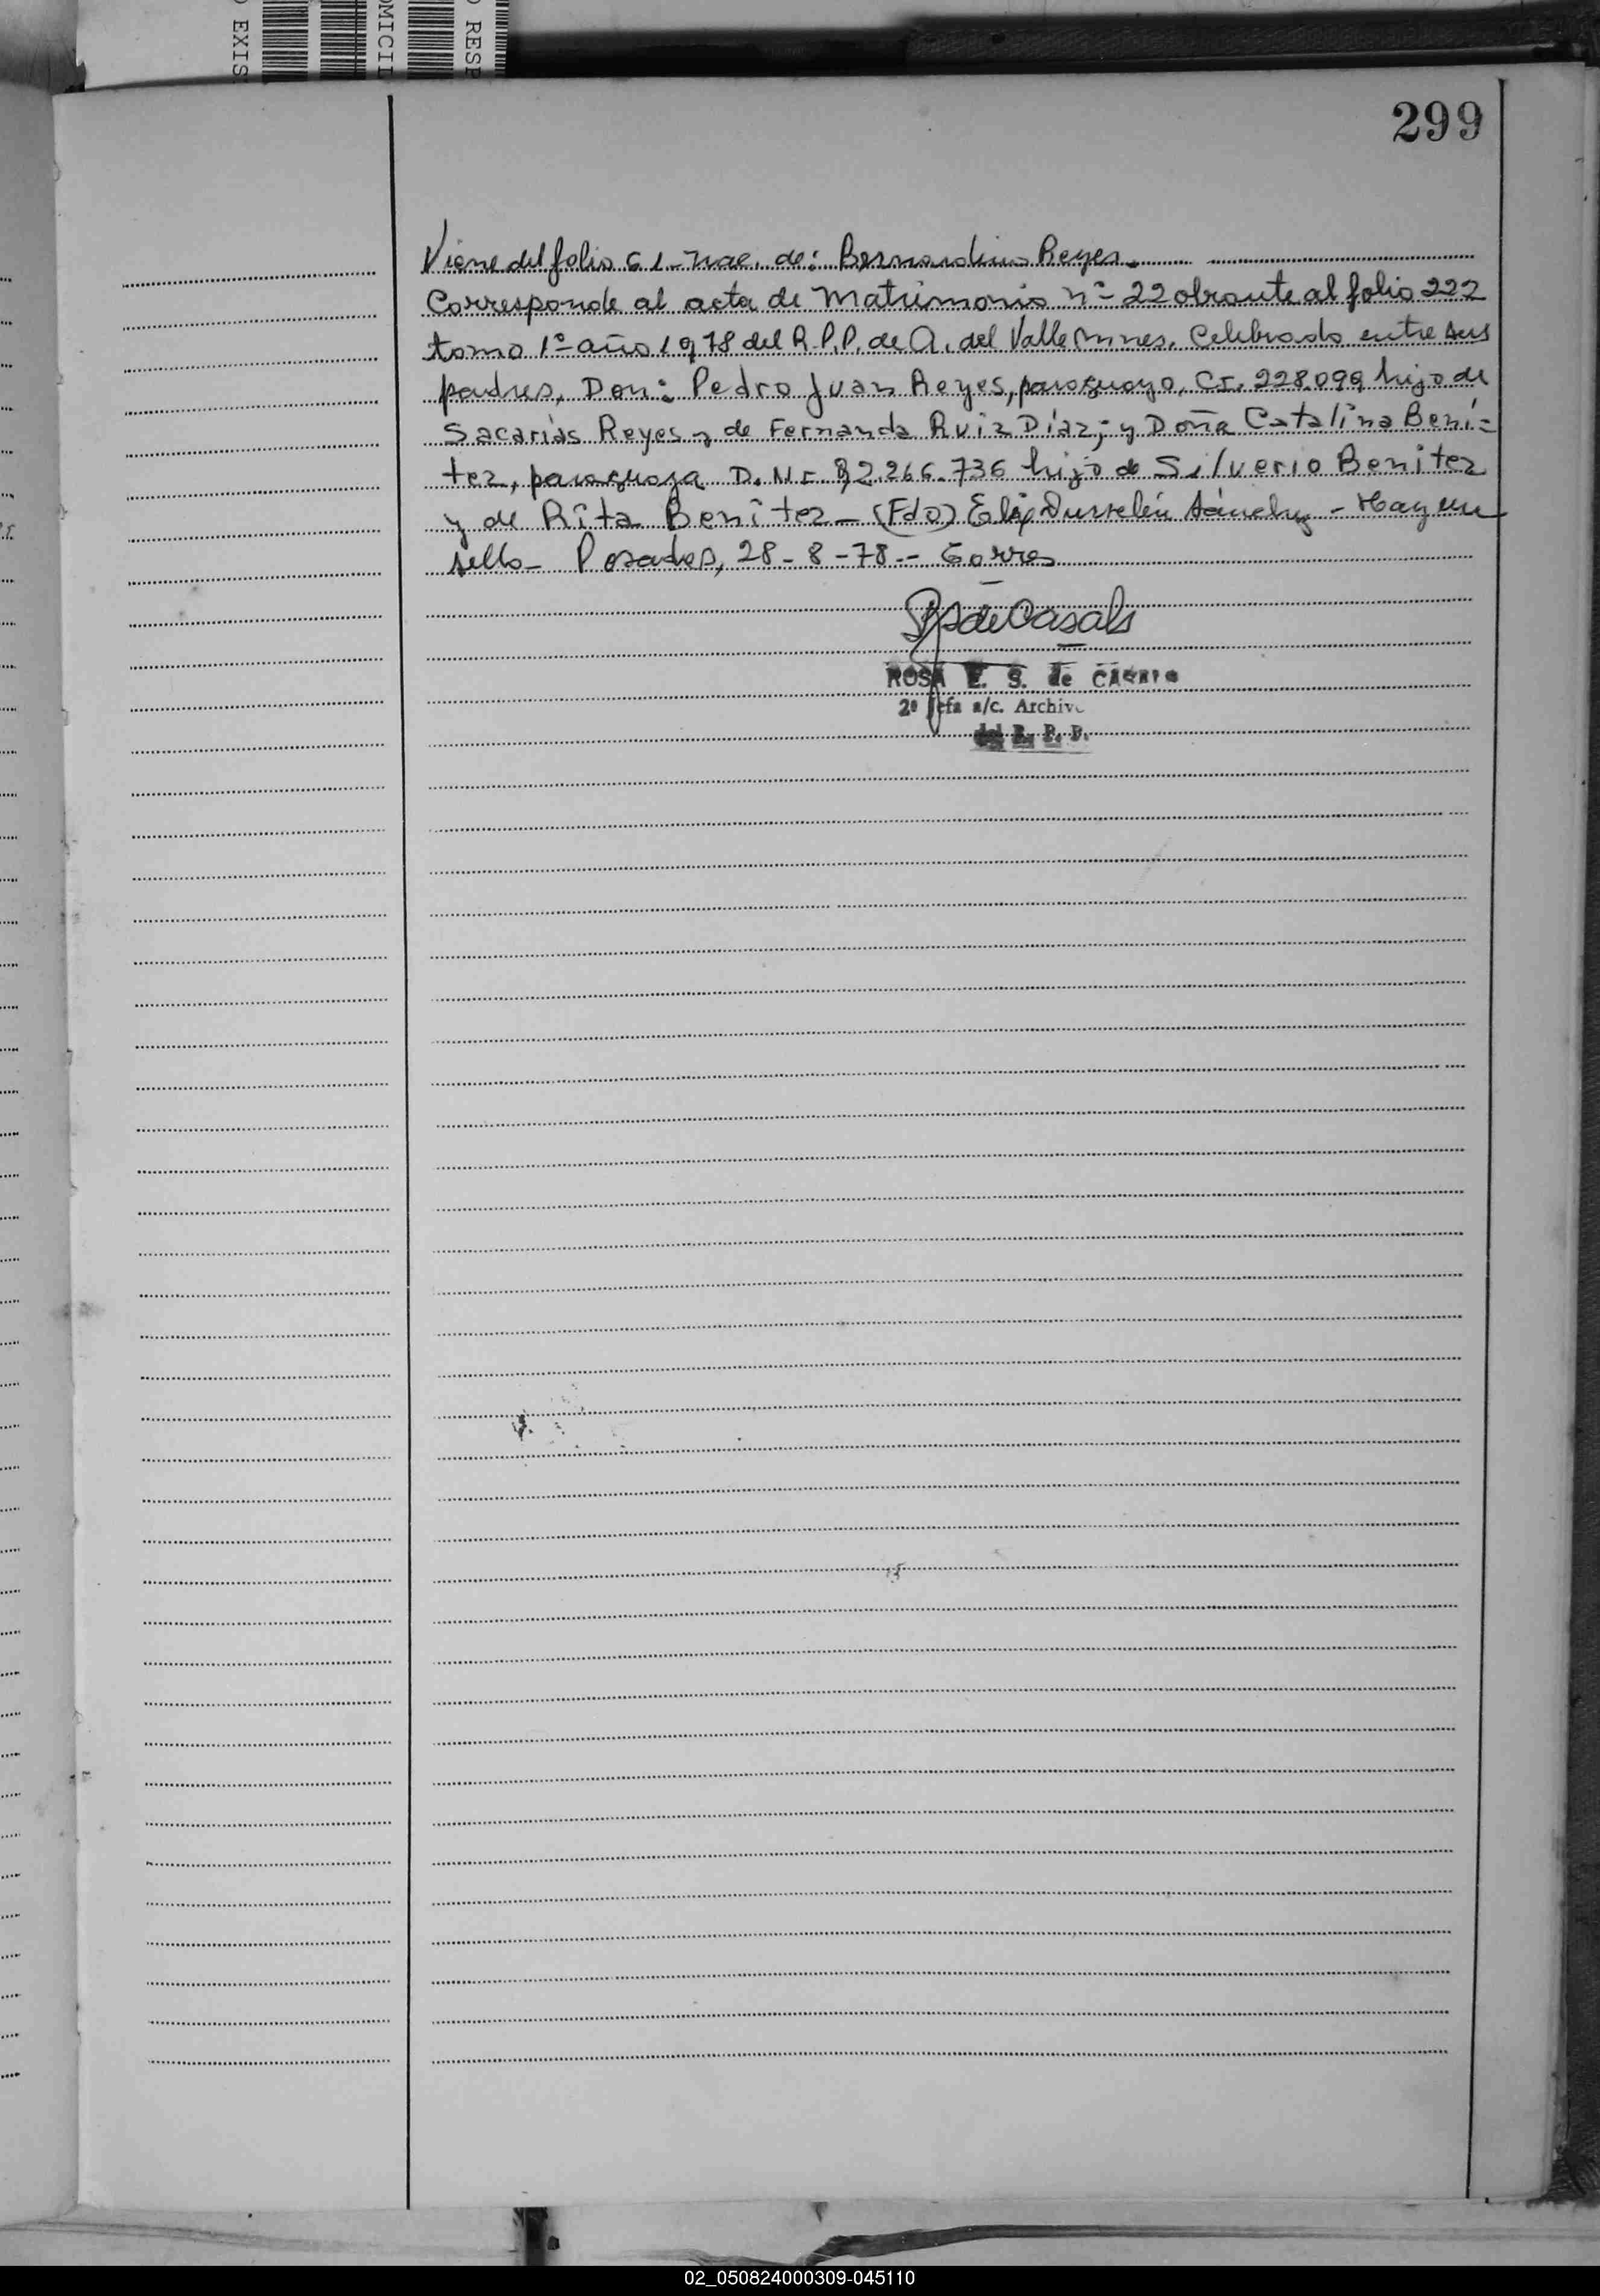 EXIS
OMICIL
RESP
299
Viene del folio 61 - nac. de: Bernardino Reyes.
Corresponde al acta de Matrimonio nº 22 obrante al folio 222
tomo 1º año 1978 del R.P.P. de A. del Valle Mnes. Celebrado entre sus
padres, Don: Pedro Juan Reyes, paraguayo, C.I. 228.099 hijo de
Sacarías Reyes y de Fernanda Ruiz Díaz; y Doña Catalina Bení=
tez, paraguaya D.N.I. 92.266.736 hija de Silverio Benitez
y de Rita Benitez - (Fdo) Sánchez - Hay un
sello - Posadas, 28-8-78 -
RS de Casals
ROSA E. S. de CASALS
2ª Jefa a/c. Archivo
del R. P. P.
02_050824000309-045110